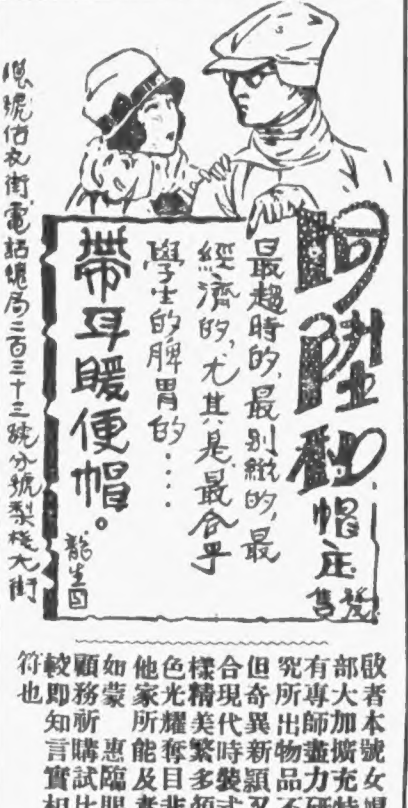 同陞和帽庄
發售
最趨時的,最別緻的,最
經濟的,尤其是最合乎
學生的脾胃的....
帶耳暖便帽。
龍生
號估衣街電話總局二百三十三號分號梨棧大街
啟者本號女帽
部大加擴充特
有專師盡力研
究所出物品不
但奇異新頴又
合現代時裝式
樣精美繁多顏
色光耀奪目非
他家所能及者
如蒙 惠臨賜
顧務祈購試比
較即知言實相
符也